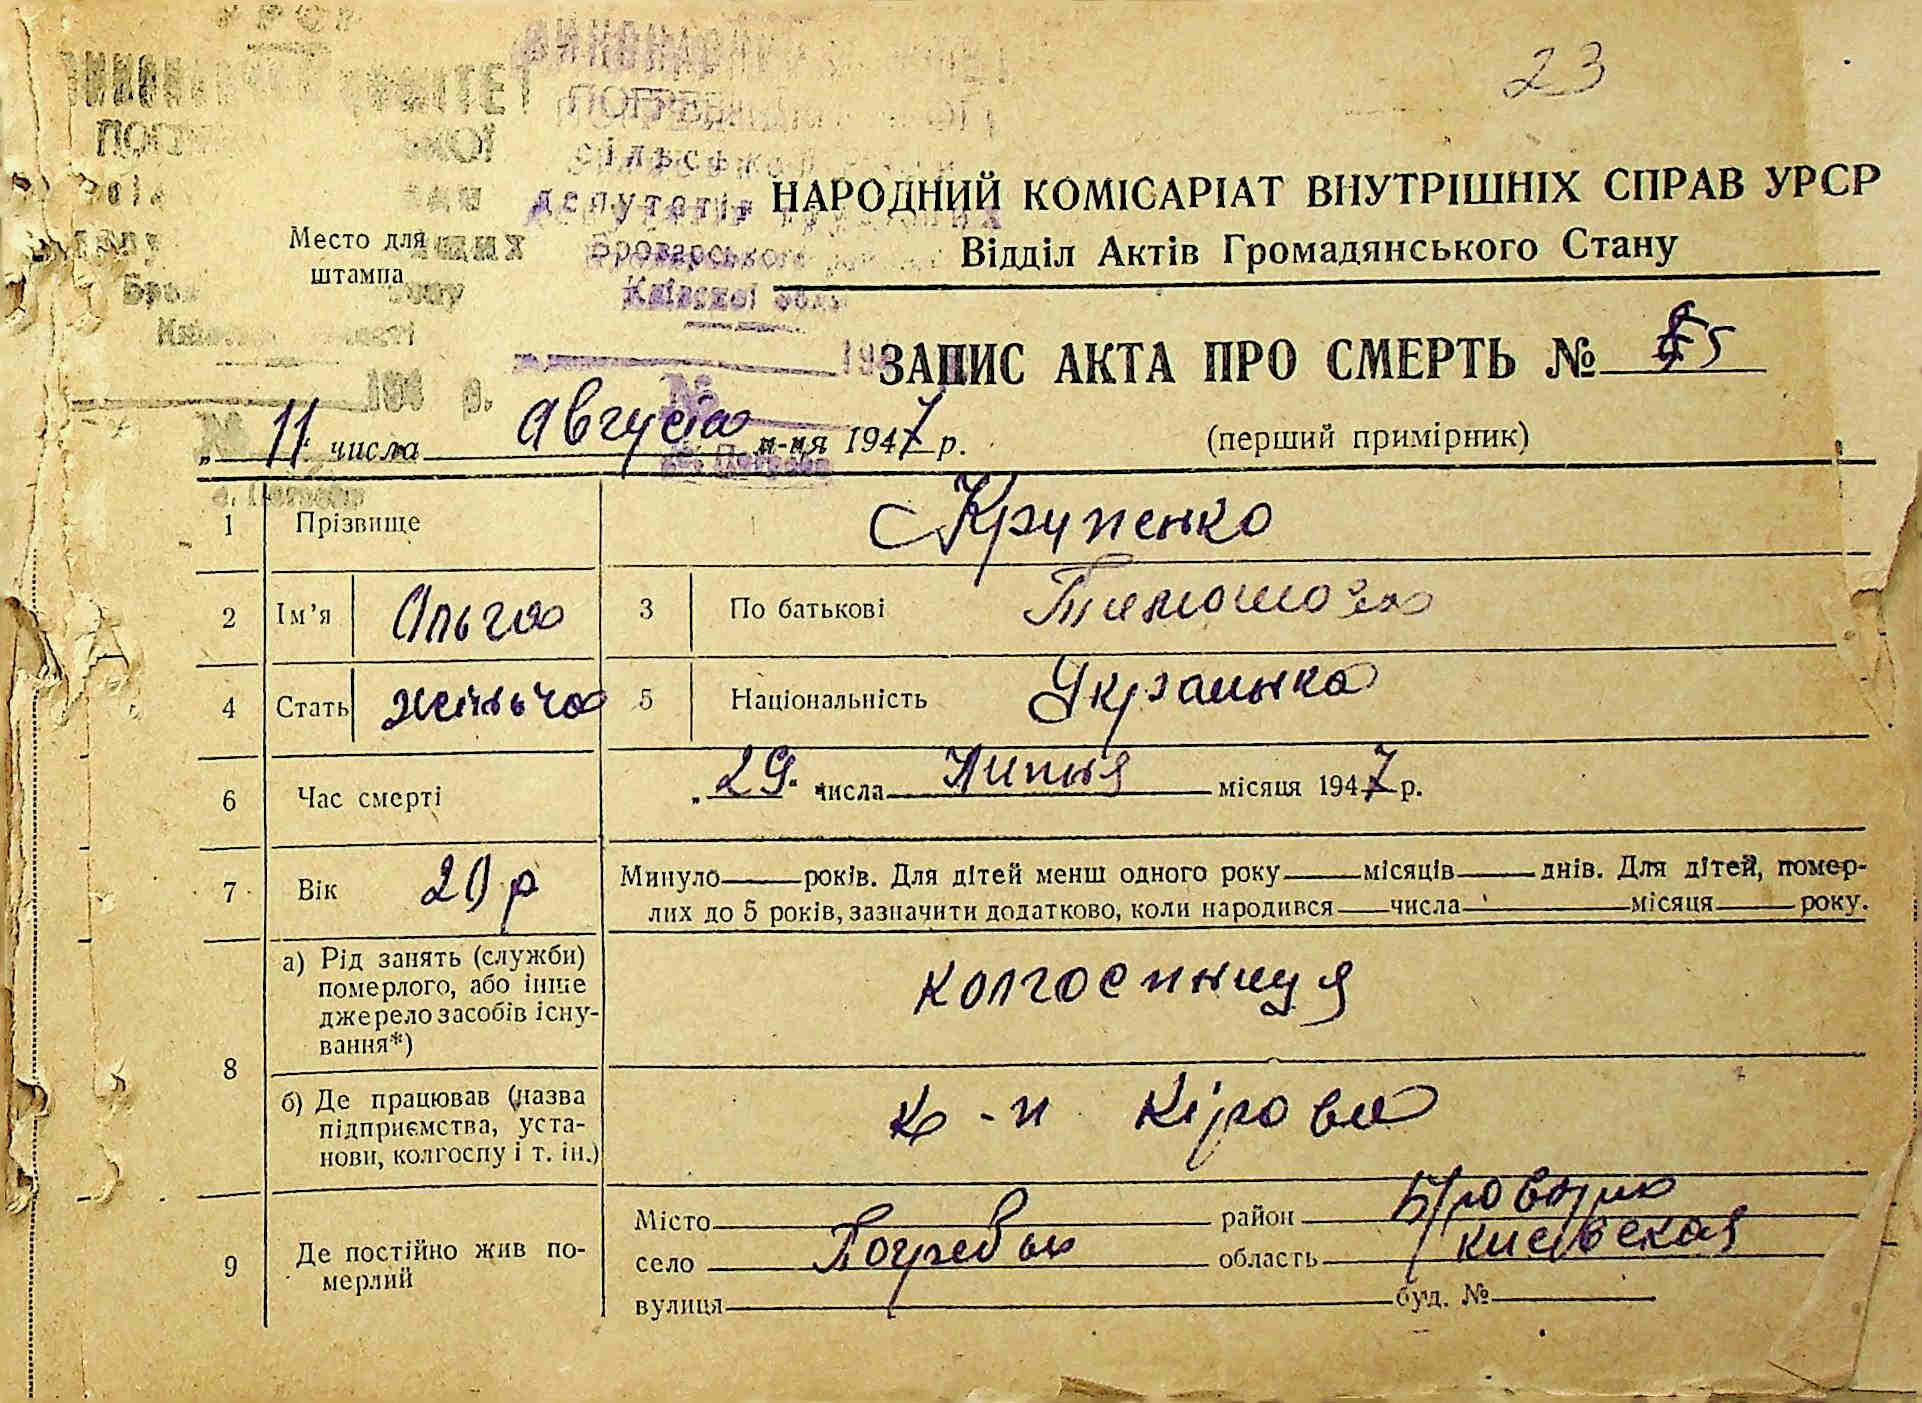 23
ВИКОНАВЧИЙ КОМІТЕТ
депутатів трудящих
Броварського
Київської області
НАРОДНИЙ КОМІСАРІАТ ВНУТРІШНІХ СПРАВ УРСР
Відділ Актів Громадянського Стану
Место для
штампа
ЗАПИС АКТА ПРО СМЕРТЬ №
„11 числа Августа м-ця 1947 р.
(перший примірник)
1 Прізвище Крупенко
2 Ім'я Ольга 3 По батькові
4 Стать жіноча 5 Національність Українка
6 Час смерті „29" числа Липня місяця 1947 р.
7 Вік 20 р Минуло років. Для дітей менш одного року місяців днів. Для дітей, помер-
лих до 5 років, зазначити додатково, коли народився числа місяця року.
8 а) Рід занять (служби)
померлого, або інше
джерело засобів існу-
вання*)
колгоспниця
б) Де працював (назва
підприємства, уста-
нови, колгоспу і т. ін.)
к-п Кірова
9 Де постійно жив по-
мерлий
Місто район
село Погребы область Киевская
вулиця буд. №